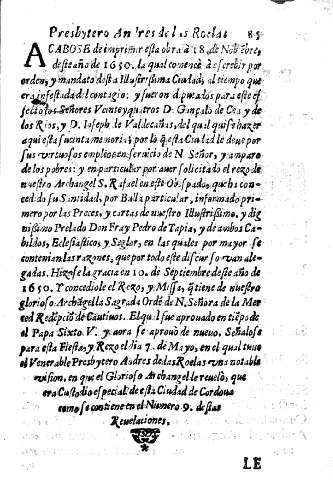 Presbytero Andres de las Roelas 85
ACABOSE de imprimir esta obra à 18. de Nobiẽbre,
deste año de 1650. la qual comencè à escrebir por
orden, y mandato desta Illustrissima Ciudad, al tiempo que
era infestada del contagio; y fueron diputados para este ef
fecto los Señores Veinteyquatros D. Gonçalo de Cea y de
los Rios, y D. Ioseph de Valdecañas, del qual quise hazer
aqui esta sucinta memoria; por lo q̃ esta Ciudad le deue por
sus virtuosos empleos en seruicio de N. Señor, y amparo
de los pobres: y en particular por auer solicitado el rezo de
nuestro Archangel S. Rafael en este Obispado, que ha con-
cedido su Santidad, por Bulla particular, informado pri-
mero por las Preces, y cartas de nuestro Illustrissimo, y dig
nissimo Prelado Don Fray Pedro de Tapia, y de ambos Ca-
bildos, Eclesiasticos, y Seglar, en las quales por mayor se
contenian las razones, que por todo este discurso van ale-
gadas. Hizose la gracia en 10. de Septiembre deste año de
1650. Y concediole el Rezo, y Missa, q̃ tiene de nuestro
glorioso Archãgel la Sagrada Ordẽ de N. Señora de la Mer
ced Redẽpciõ de Cautiuos. El qual fue aprouado en tiẽpo de
el Papa Sixto V. y aora se aprouò de nuevo. Señalose
para esta Fiesta, y Rezo el dia 7. de Mayo, en el qual tuuo
el Venerable Presbytero Andres de las Roelas vna notable
vision, en que el Glorioso Archangel le reuelò, que
era Custodio especial de esta Ciudad de Cordoua
como se contiene en el Numero 9. de stas
Reuelaciones.
LE